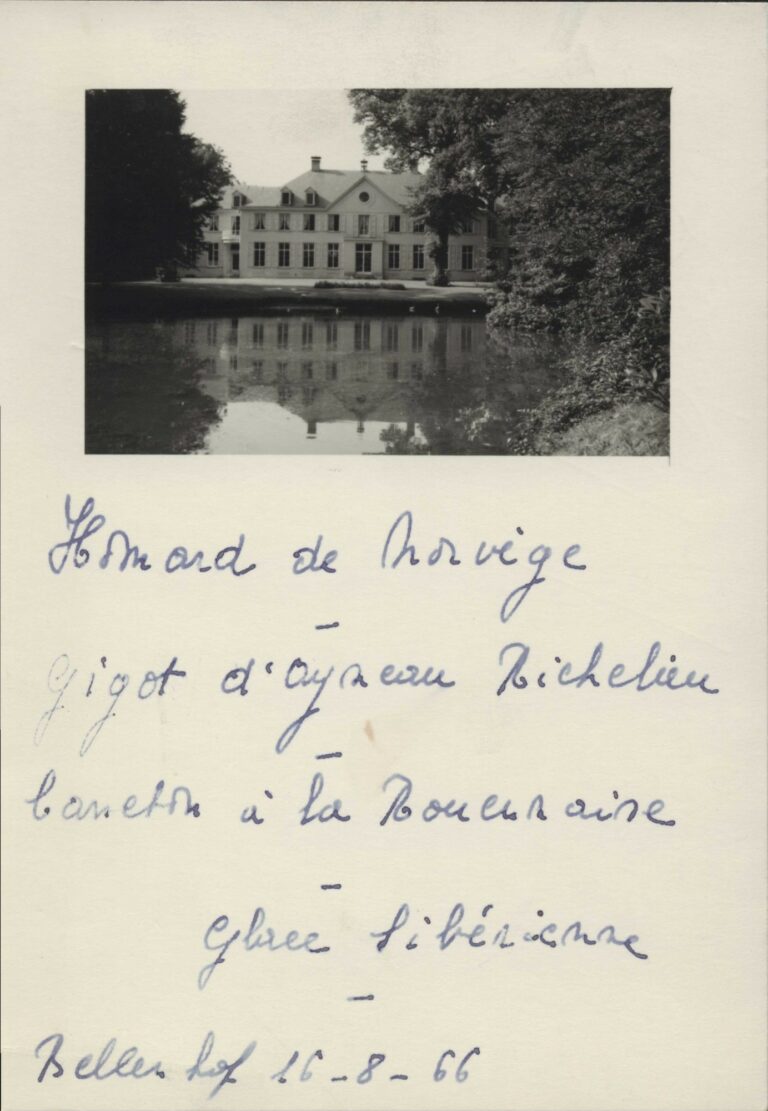 Homard de Norvège
-
Gigot d'Agneau Richelieu
-
Caneton à la Rouennaise
-
Glace Sibérienne
-
Bellenhof 16-8-66